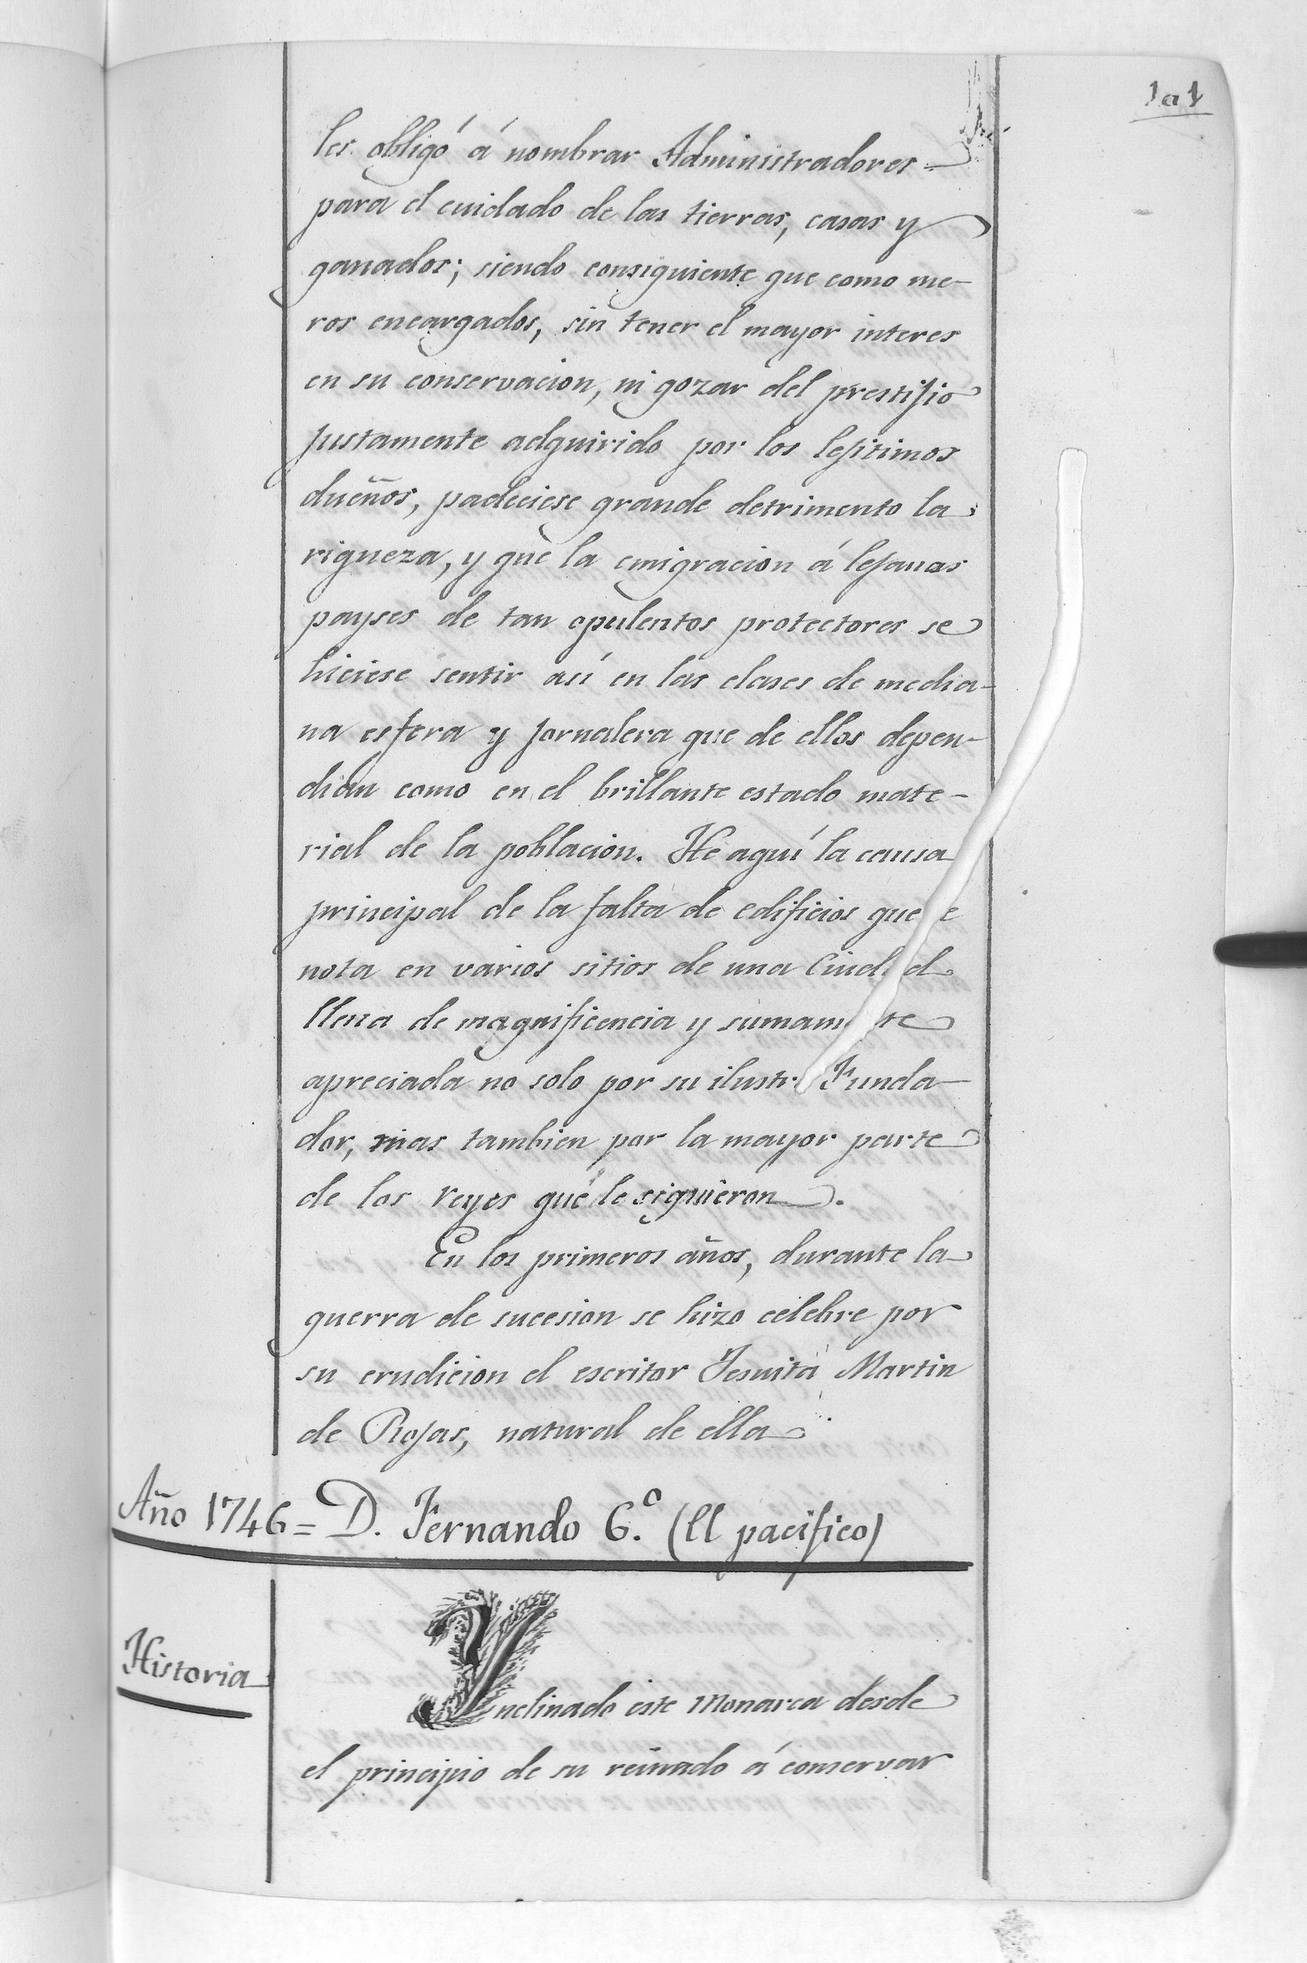 1a1
les obligó á nombrar Administradores =
para el cuidado de las tierras, casas y
ganados; siendo consiguiente que como me-
ros encargados, sin tener el mayor interes
en su conservacion, ni gozar del prestijio
justamente adquirido por los lejitimos
dueños, padeciese grande detrimento la
riqueza, y que la emigracion á lejanas
payses de tan opulentos protectores se
hiciese sentir así en las clases de media-
na esfera y jornalera que de ellos depen-
dian como en el brillante estado mate-
rial de la poblacion. He aquí la causa
principal de la falta de edificios que
nota en varios sitios de una
llena de magnificencia y
apreciada no solo por su Funda-
dor, mas tambien por la mayor parte
de los reyes que le siguieron.
En los primeros años, durante la
guerra de sucesion se hizo celebre por
su erudicion el escritor Jesuita Martin
de Rojas, natural de ella
Año 1746 = D. Fernando 6.º (El pacifico)
Historia
Inclinado este Monarca desde
el principio de su reinado á conservar